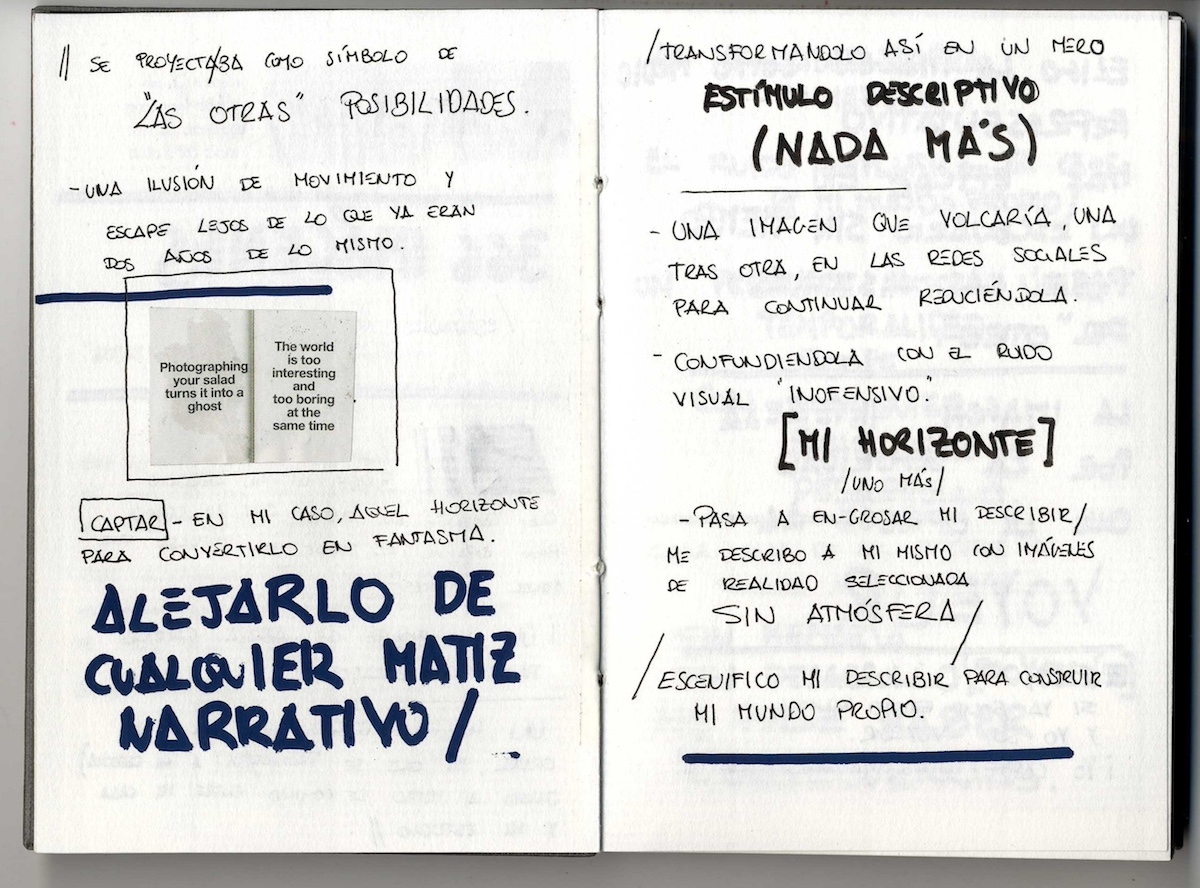 // SE PROYECTA/BA COMO SÍMBOLO DE
"LAS OTRAS" POSIBILIDADES.
- UNA ILUSIÓN DE MOVIMIENTO Y
ESCAPE LEJOS DE LO QUE YA ERAN
DOS AÑOS DE LO MISMO.
Photographing
your salad
turns it into a
ghost
The world
is too
interesting
and
too boring
at the
same time
CAPTAR - EN MI CASO, AQUEL HORIZONTE
PARA CONVERTIRLO EN FANTASMA.
ALEJARLO DE
CUALQUIER MATIZ
NARRATIVO /
/ TRANSFORMANDOLO ASÍ EN UN MERO
ESTÍMULO DESCRIPTIVO
(NADA MÁS)
- UNA IMAGEN QUE VOLCARÍA, UNA
TRAS OTRA, EN LAS REDES SOCIALES
PARA CONTINUAR REDUCIÉNDOLA.
- CONFUNDIENDOLA CON EL RUIDO
VISUAL "INOFENSIVO".
[MI HORIZONTE]
/UNO MÁS/
- PASA A EN-GROSAR MI DESCRIBIR/
ME DESCRIBO A MI MISMO CON IMÁGENES
DE REALIDAD SELECCIONADA
SIN ATMÓSFERA /
/ ESCENIFICO MI DESCRIBIR PARA CONSTRUIR
MI MUNDO PROPIO.